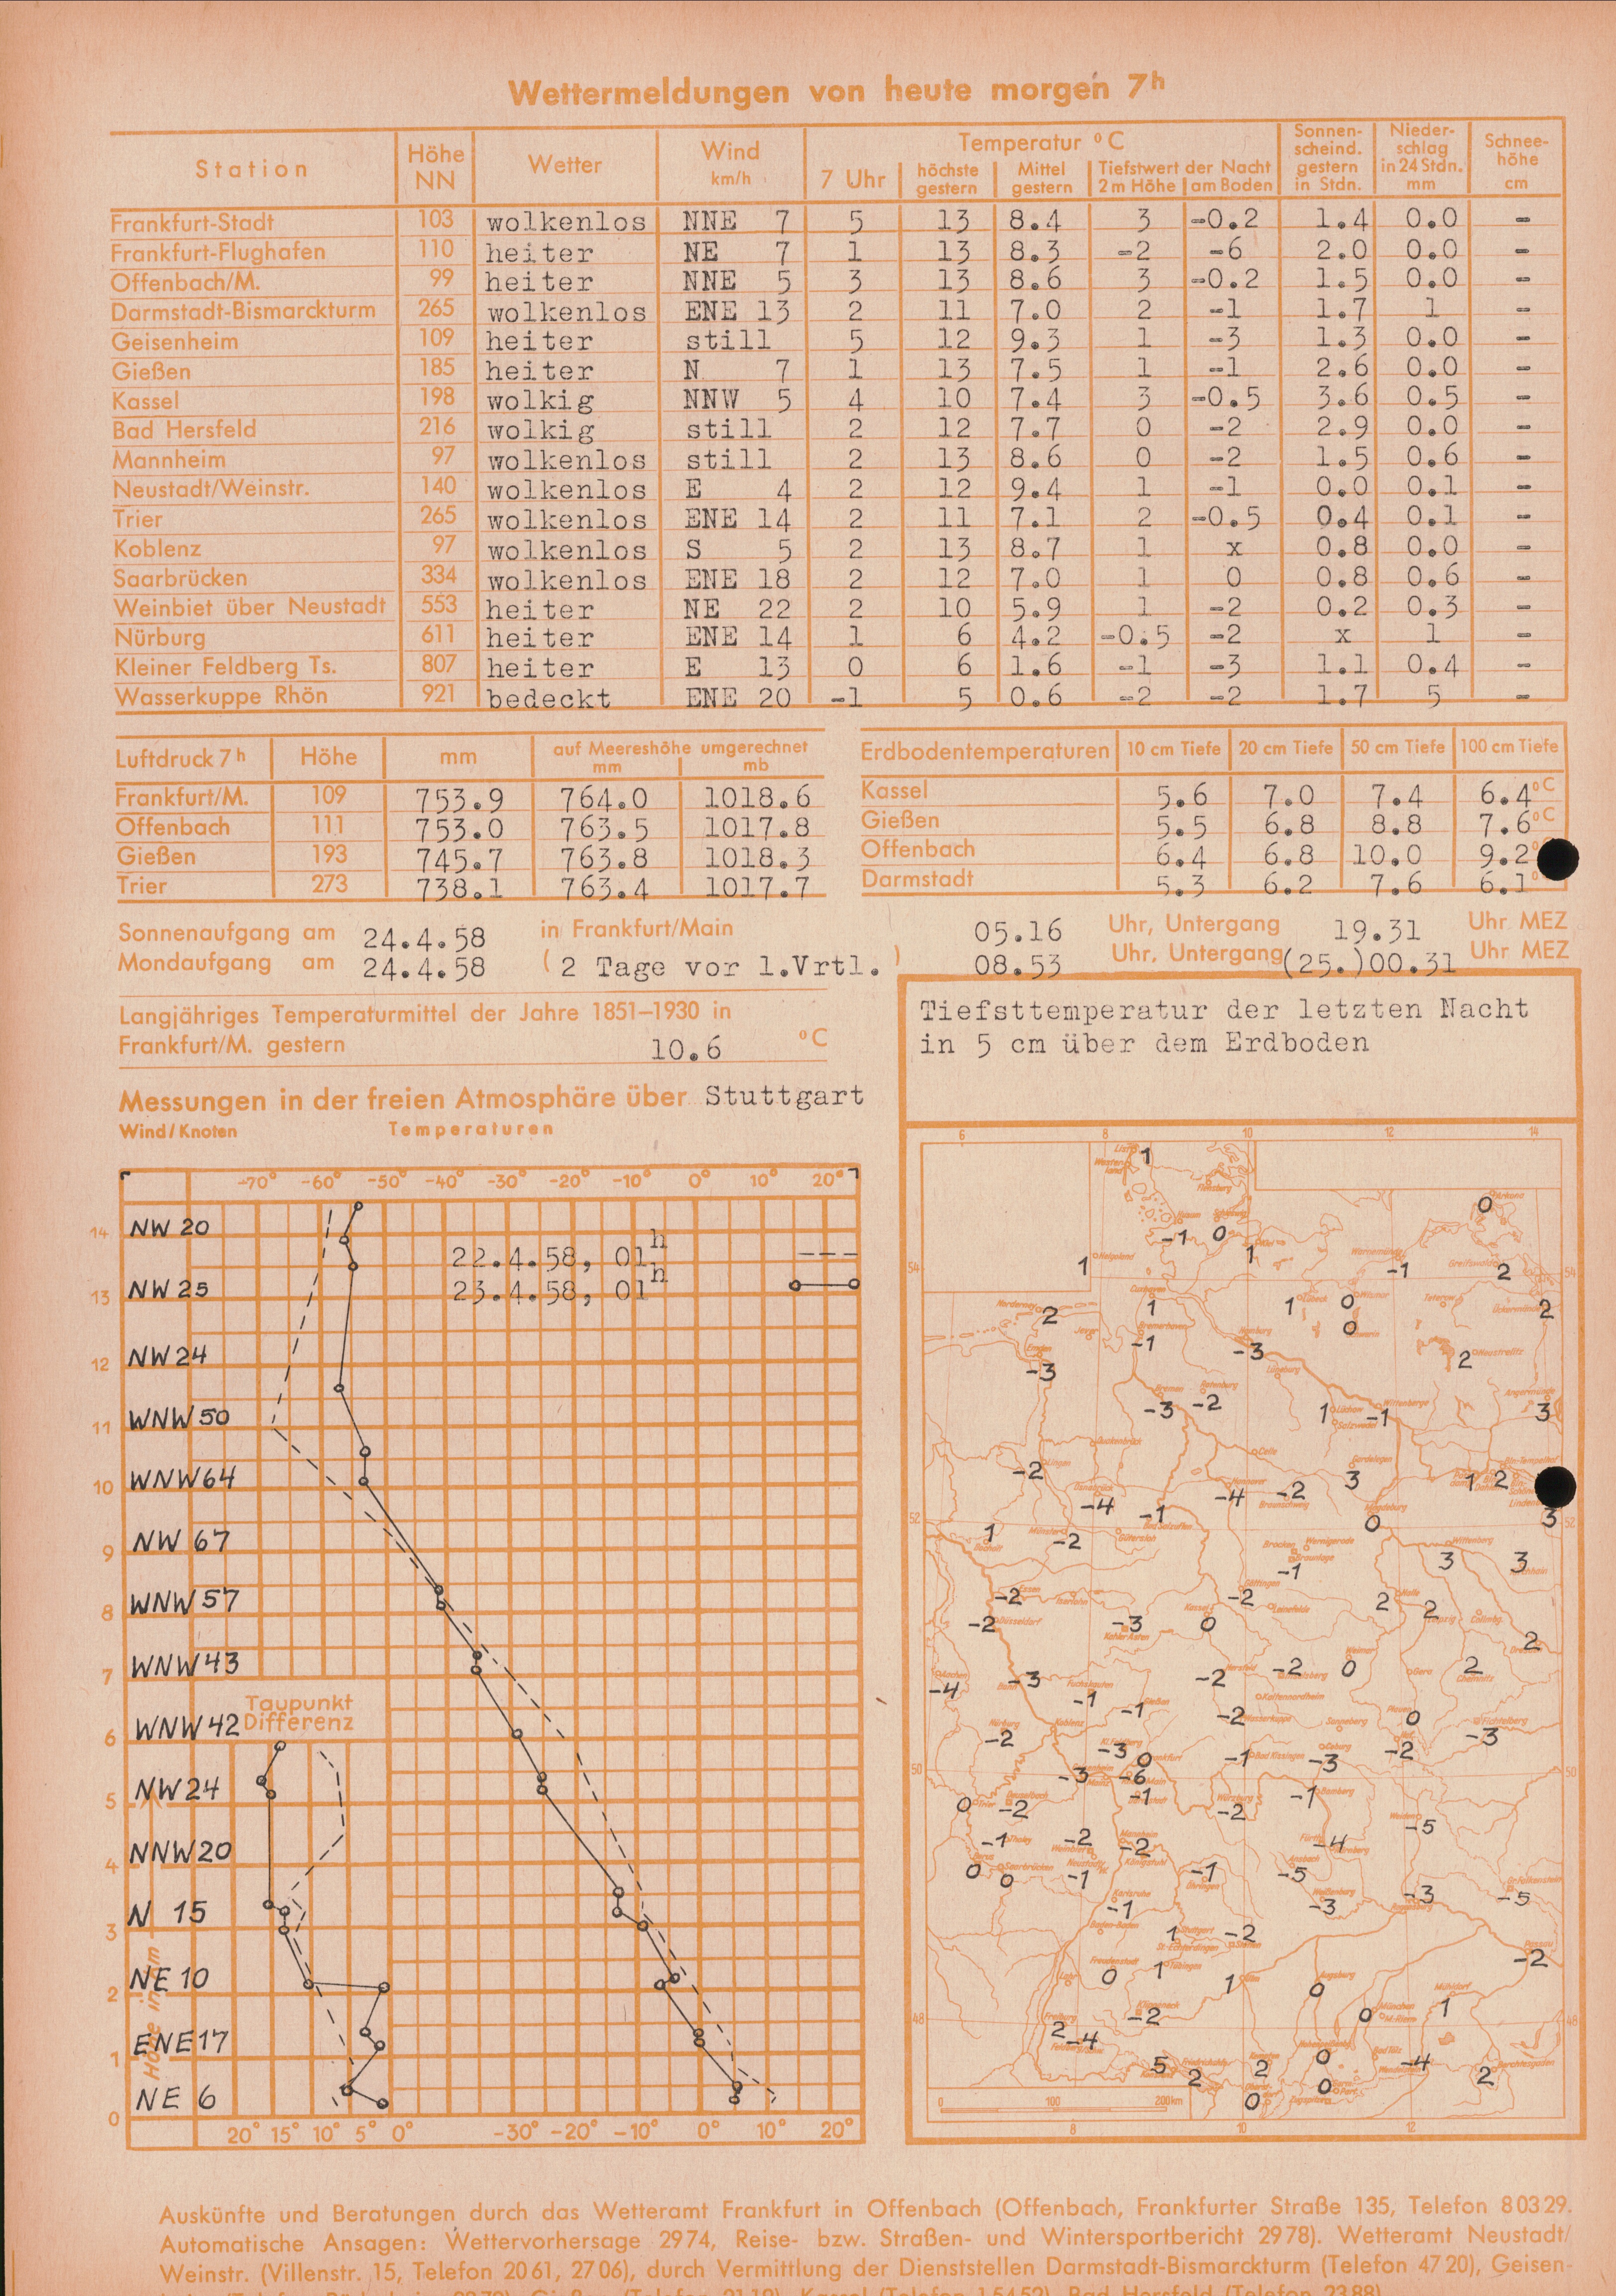 Wettermeldungen von heute morgen 7h
Station Höhe NN Wetter Wind km/h Temperatur °C 7 Uhr höchste gestern Mittel gestern Tiefstwert der Nacht 2m Höhe am Boden Sonnenscheind. gestern in Stdn. Niederschlag in 24 Stdn. mm Schneehöhe cm
Frankfurt-Stadt 103 wolkenlos NNE 7 5 13 8.4 3 -0.2 1.4 0.0 -
Frankfurt-Flughafen 110 heiter NE 7 1 13 8.3 -2 -6 2.0 0.0 -
Offenbach/M. 99 heiter NNE 5 3 13 8.6 3 -0.2 1.5 0.0 -
Darmstadt-Bismarckturm 265 wolkenlos ENE 13 2 11 7.0 2 -1 1.7 1 -
Geisenheim 109 heiter still 5 12 9.3 1 -3 1.3 0.0 -
Gießen 185 heiter N 7 1 13 7.5 1 -1 2.6 0.0 -
Kassel 198 wolkig NNW 5 4 10 7.4 3 -0.5 3.6 0.5 -
Bad Hersfeld 216 wolkig still 2 12 7.7 0 -2 2.9 0.0 -
Mannheim 97 wolkenlos still 2 13 8.6 0 -2 1.5 0.6 -
Neustadt/Weinstr. 140 wolkenlos E 4 2 12 9.4 1 -1 0.0 0.1 -
Trier 265 wolkenlos ENE 14 2 11 7.1 2 -0.5 0.4 0.1 -
Koblenz 97 wolkenlos S 5 2 13 8.7 1 x 0.8 0.0 -
Saarbrücken 334 wolkenlos ENE 18 2 12 7.0 1 0 0.8 0.6 -
Weinbiet über Neustadt 553 heiter NE 22 2 10 5.9 1 -2 0.2 0.3 -
Nürburg 611 heiter ENE 14 1 6 4.2 -0.5 -2 x 1 -
Kleiner Feldberg Ts. 807 heiter E 13 0 6 1.6 -1 -3 1.1 0.4 -
Wasserkuppe Rhön 921 bedeckt ENE 20 -1 5 0.6 -2 -2 1.7 5 -
Luftdruck 7h Höhe mm auf Meereshöhe umgerechnet mm mb
Frankfurt/M. 109 753.9 764.0 1018.6
Offenbach 111 753.0 763.5 1017.8
Gießen 193 745.7 763.8 1018.3
Trier 273 738.1 763.4 1017.7
Erdbodentemperaturen 10 cm Tiefe 20 cm Tiefe 50 cm Tiefe 100 cm Tiefe
Kassel 5.6 7.0 7.4 6.4 °C
Gießen 5.5 6.8 8.8 7.6 °C
Offenbach 6.4 6.8 10.0 9.2
Darmstadt 5.3 6.2 7.6 6.1
Sonnenaufgang am 24.4.58 in Frankfurt/Main 05.16 Uhr, Untergang 19.31 Uhr MEZ
Mondaufgang am 24.4.58 (2 Tage vor 1.Vrtl.) 08.53 Uhr, Untergang (25.)00.31 Uhr MEZ
Langjähriges Temperaturmittel der Jahre 1851–1930 in
Frankfurt/M. gestern 10.6 °C
Messungen in der freien Atmosphäre über Stuttgart
Wind/Knoten Temperaturen
-70° -60° -50° -40° -30° -20° -10° 0° 10° 20°
14 NW 20
22.4.58, 01h
13 NW 25
23.4.58, 01h
12 NW 24
11 WNW 50
10 WNW 64
9 NW 67
8 WNW 57
7 WNW 43
Taupunkt
Differenz
6 WNW 42
5 NW 24
4 NNW 20
3 N 15
2 NE 10
1 ENE 17
0 NE 6
Höhe in km
20° 15° 10° 5° 0° -30° -20° -10° 0° 10° 20°
Tiefsttemperatur der letzten Nacht
in 5 cm über dem Erdboden
6 8 10 12 14
1
0
-1 0 1
54 1 -1 2 54
2 1 1 0 2
-1 -3 0
-3 2
-3 -2 1 -1 3
-2 -4 -2 3 1 2
-4 -1 0 3
52 1 -2 52
-1 3 3
-2 -2 2 2
-2 -3 0 2
-4 -3 -2 -2 0 2
-1 -1 -2 0
-2 -3 0 -1 -3 -2 -3
50 -3 -6 50
0 -2 -1 -2 -1
-1 -2 -2 -4 -5
0 0 -1 -1 -5 -3 -5
-1 -3
1 -2 -2
0 1 1 0
48 2 -4 -2 0 1 48
5 2 2 0 -4 2
0 0
0 100 200km
8 10 12
Auskünfte und Beratungen durch das Wetteramt Frankfurt in Offenbach (Offenbach, Frankfurter Straße 135, Telefon 8 03 29.
Automatische Ansagen: Wettervorhersage 29 74, Reise- bzw. Straßen- und Wintersportbericht 29 78). Wetteramt Neustadt/
Weinstr. (Villenstr. 15, Telefon 20 61, 27 06), durch Vermittlung der Dienststellen Darmstadt-Bismarckturm (Telefon 47 20), Geisen-